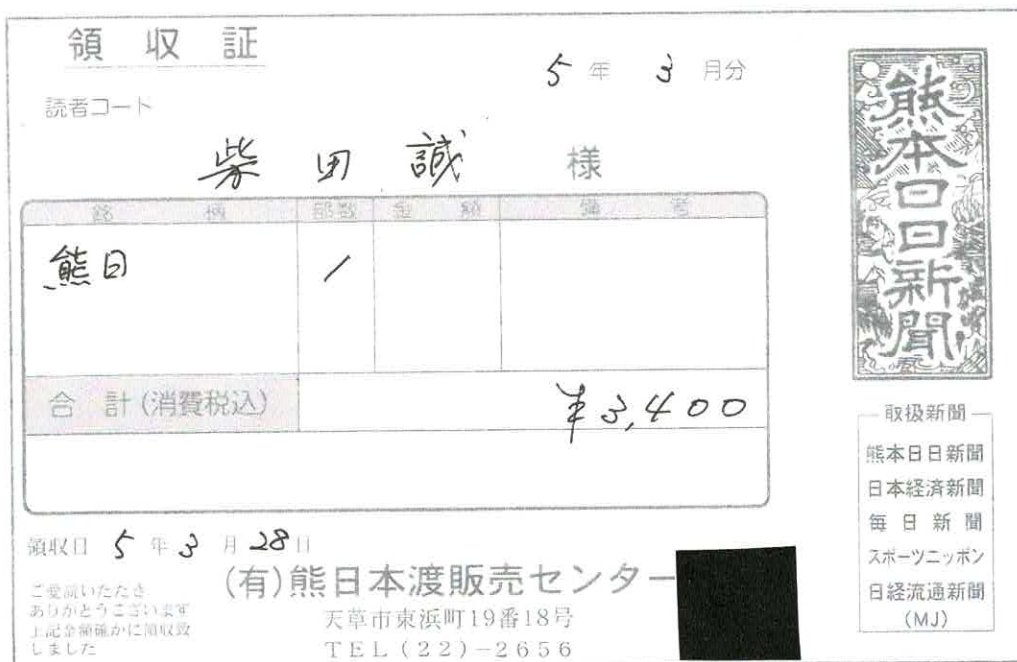 領収証
5年 3月分
読者コート
柴田誠 様
銘柄 部数 金額 備考
熊日 1
合計(消費税込) ¥3,400
領収日 5年3月28日
ご愛読いただき
ありがとうございます
上記金額確かに領収致
しました
(有)熊日本渡販売センター
天草市東浜町19番18号
TEL(22)-2656
熊本日日新聞
取扱新聞
熊本日日新聞
日本経済新聞
毎日新聞
スポーツニッポン
日経流通新聞
(MJ)